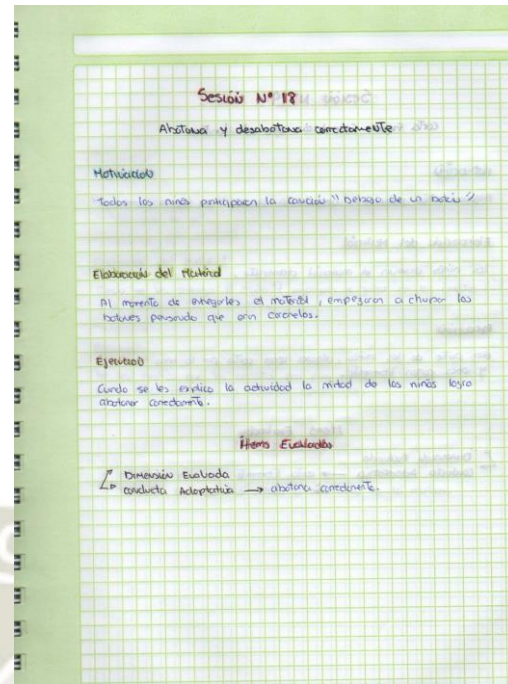 Sesión N° 18
Abotona y desabotona correctamente
Motivación
Todos los niños participaron la canción "Debajo de un botón"
Elaboración del Material
Al momento de entregarles el material, empezaron a chupar los
botones pensando que eran caramelos.
Ejecución
Cundo se les explico la actividad la mitad de los niños logro
abotonar correctamente.
Items Evaluados
Dimensión Evaluada
conducta Adaptativa → abotona correctamente.